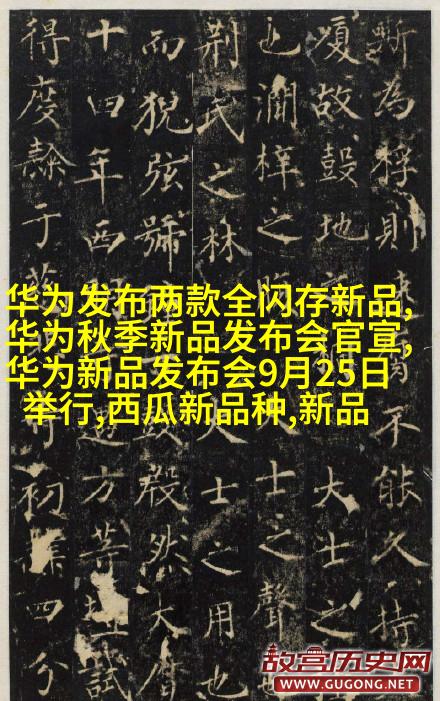 為桴則不能久持
故鼓地大士之
也澗梓之士之聲
荆氏之林大士之用也
而猊弦號鼓殷然大
十四年西方等試
得度隸于初隸四分
华为发布两款全闪存新品,
华为秋季新品发布会官宣,
华为新品发布会9月25日
举行,西瓜新品种,新品
故宫历史网
WWW.GUGONG.NET